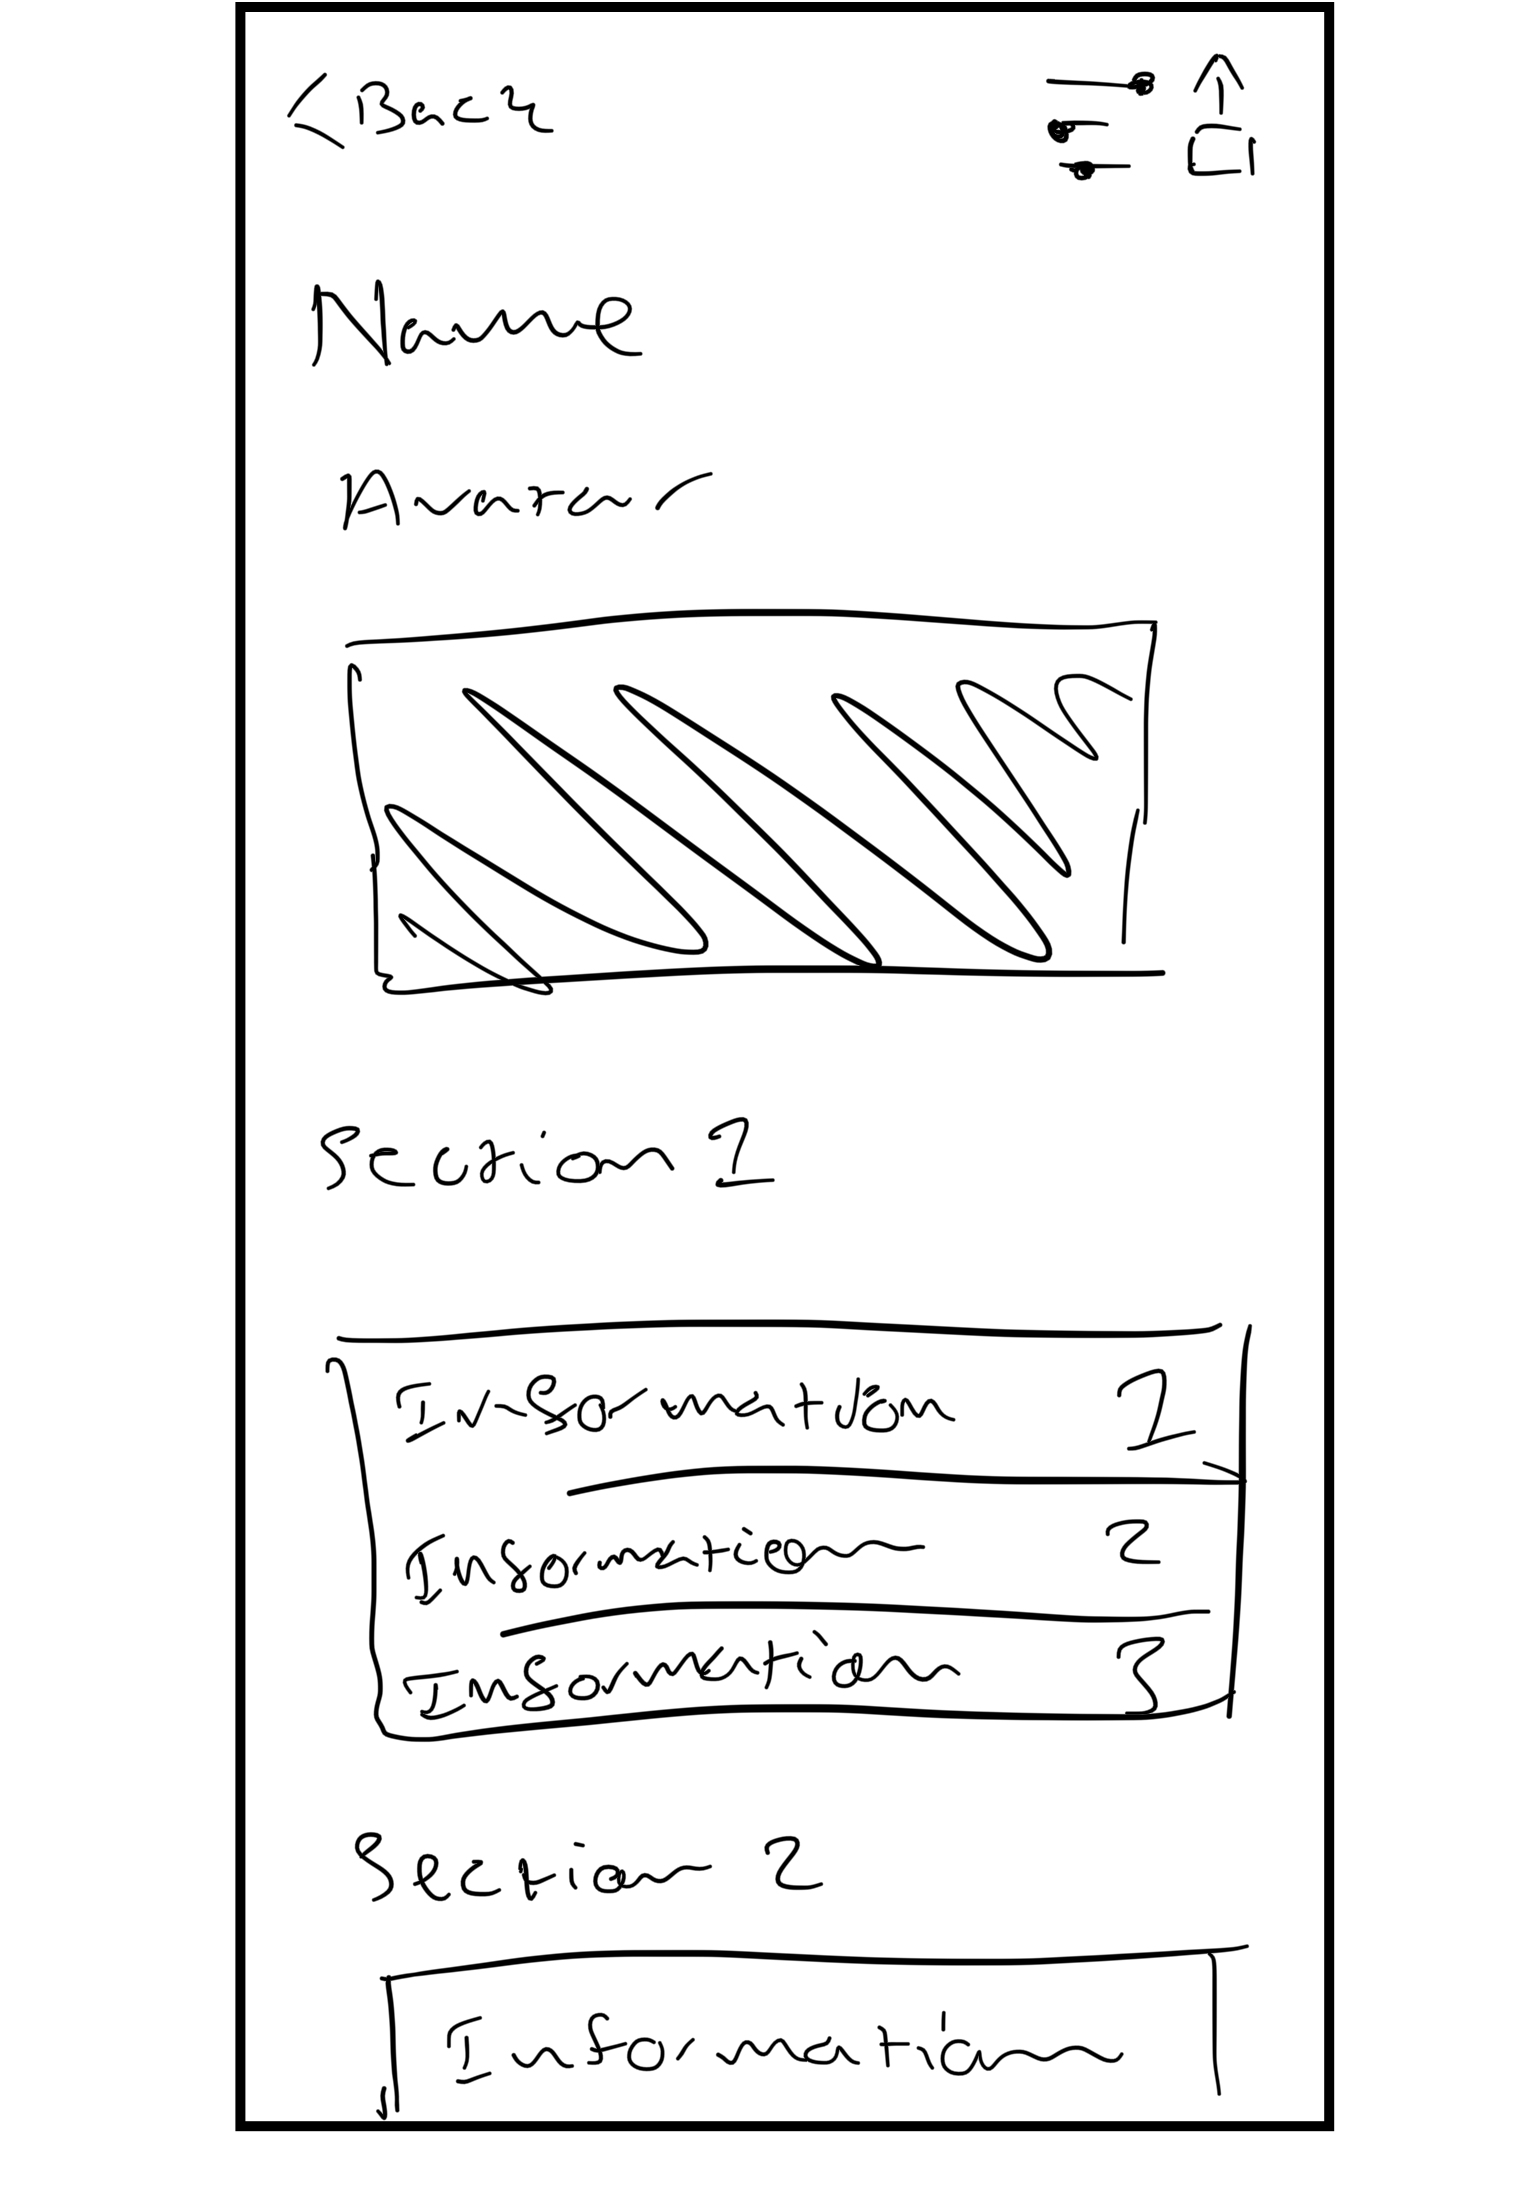 <Back
Name
Avatar
Section 1
Information 1
Information 2
Information 3
Section 2
Information